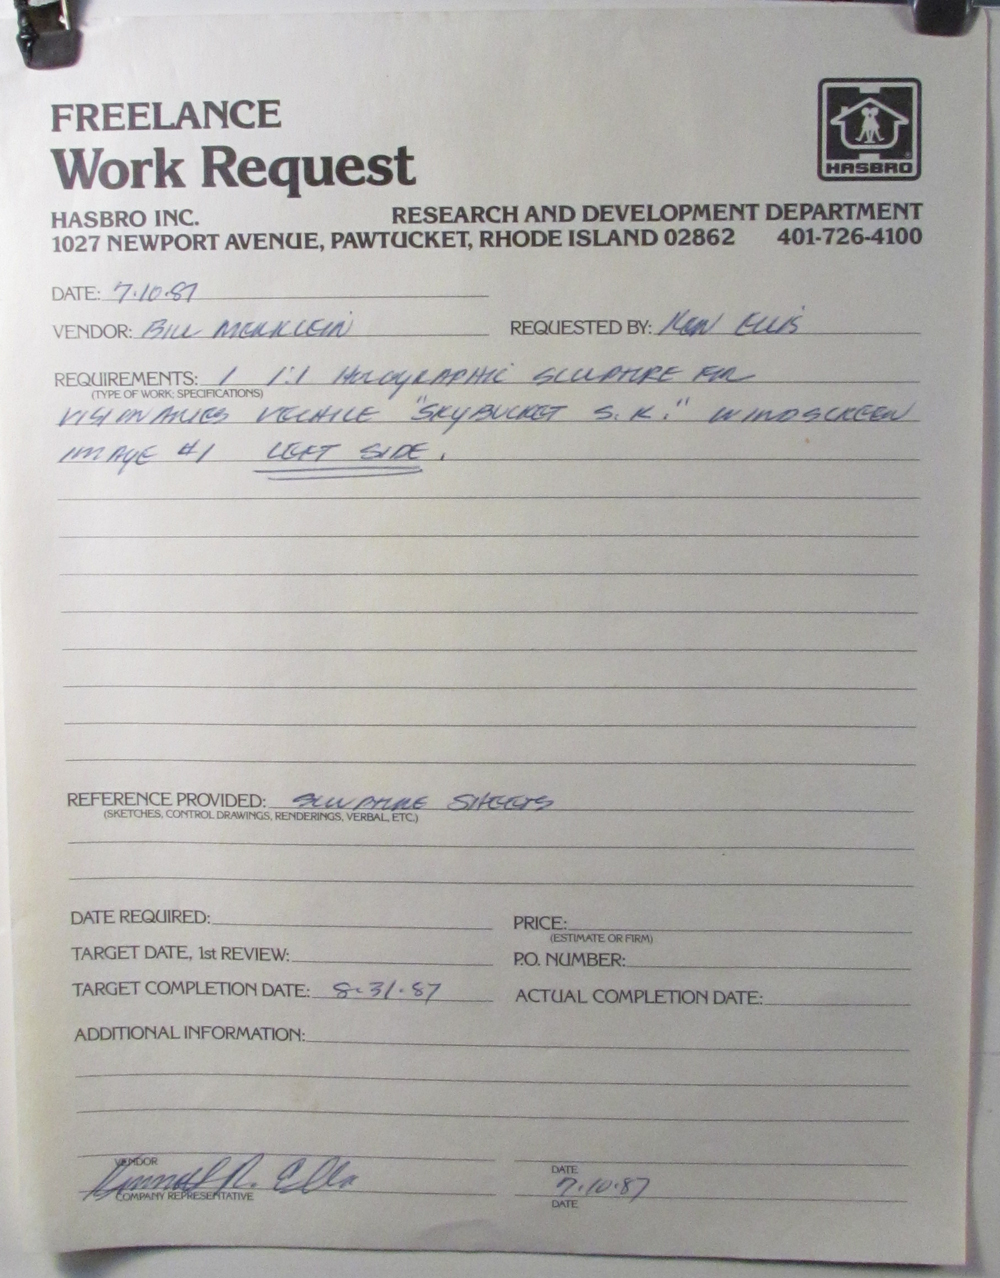 FREELANCE
Work Request
HASBRO
HASBRO INC. RESEARCH AND DEVELOPMENT DEPARTMENT
1027 NEWPORT AVENUE, PAWTUCKET, RHODE ISLAND 02862 401-726-4100
DATE: 7.10.87
VENDOR: BILL MERKLEIN REQUESTED BY: KEN ELLIS
REQUIREMENTS: 1 1:1 HOLOGRAPHIC SCULPTURE FOR
(TYPE OF WORK; SPECIFICATIONS)
VISIONARIES VECHILE "SKYBUCKET S.K." WINDSCREEN
IMAGE #1 LEFT SIDE.
REFERENCE PROVIDED: SCULPTURE SHEETS
(SKETCHES, CONTROL DRAWINGS, RENDERINGS, VERBAL, ETC.)
DATE REQUIRED: PRICE:
(ESTIMATE OR FIRM)
TARGET DATE, 1st REVIEW: P.O. NUMBER:
TARGET COMPLETION DATE: 8.31.87 ACTUAL COMPLETION DATE:
ADDITIONAL INFORMATION:
VENDOR DATE
Kenneth R. Ellis 7.10.87
COMPANY REPRESENTATIVE DATE